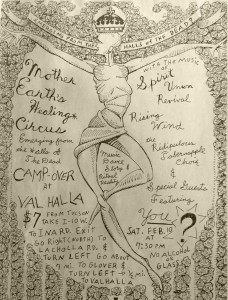 HALLS OF THE DEAD
Mother
Earth's
Healing
Circus
Emerging from
the Halls of
The Dead
CAMP-OVER
AT
VALHALLA
$7 FROM TUCSON
TAKE I-10 W.
TO INA RD. EXIT
GO RIGHT (NORTH) TO
LA CHOLLA RD. &
TURN LEFT GO ABOUT
7 MI. TO GLOVER &
TURN LEFT - ½ MI.
TO VALHALLA
Music
Dance
Story &
Ritual
WITH THE MUSIC
OF
Spirit
Union
Revival
Rising
Wind
the
Choir
&
Special Guests
Featuring
You
?
SAT. FEB. 19
AT
7:30 PM
NO ALCOHOL
OR
GLASS